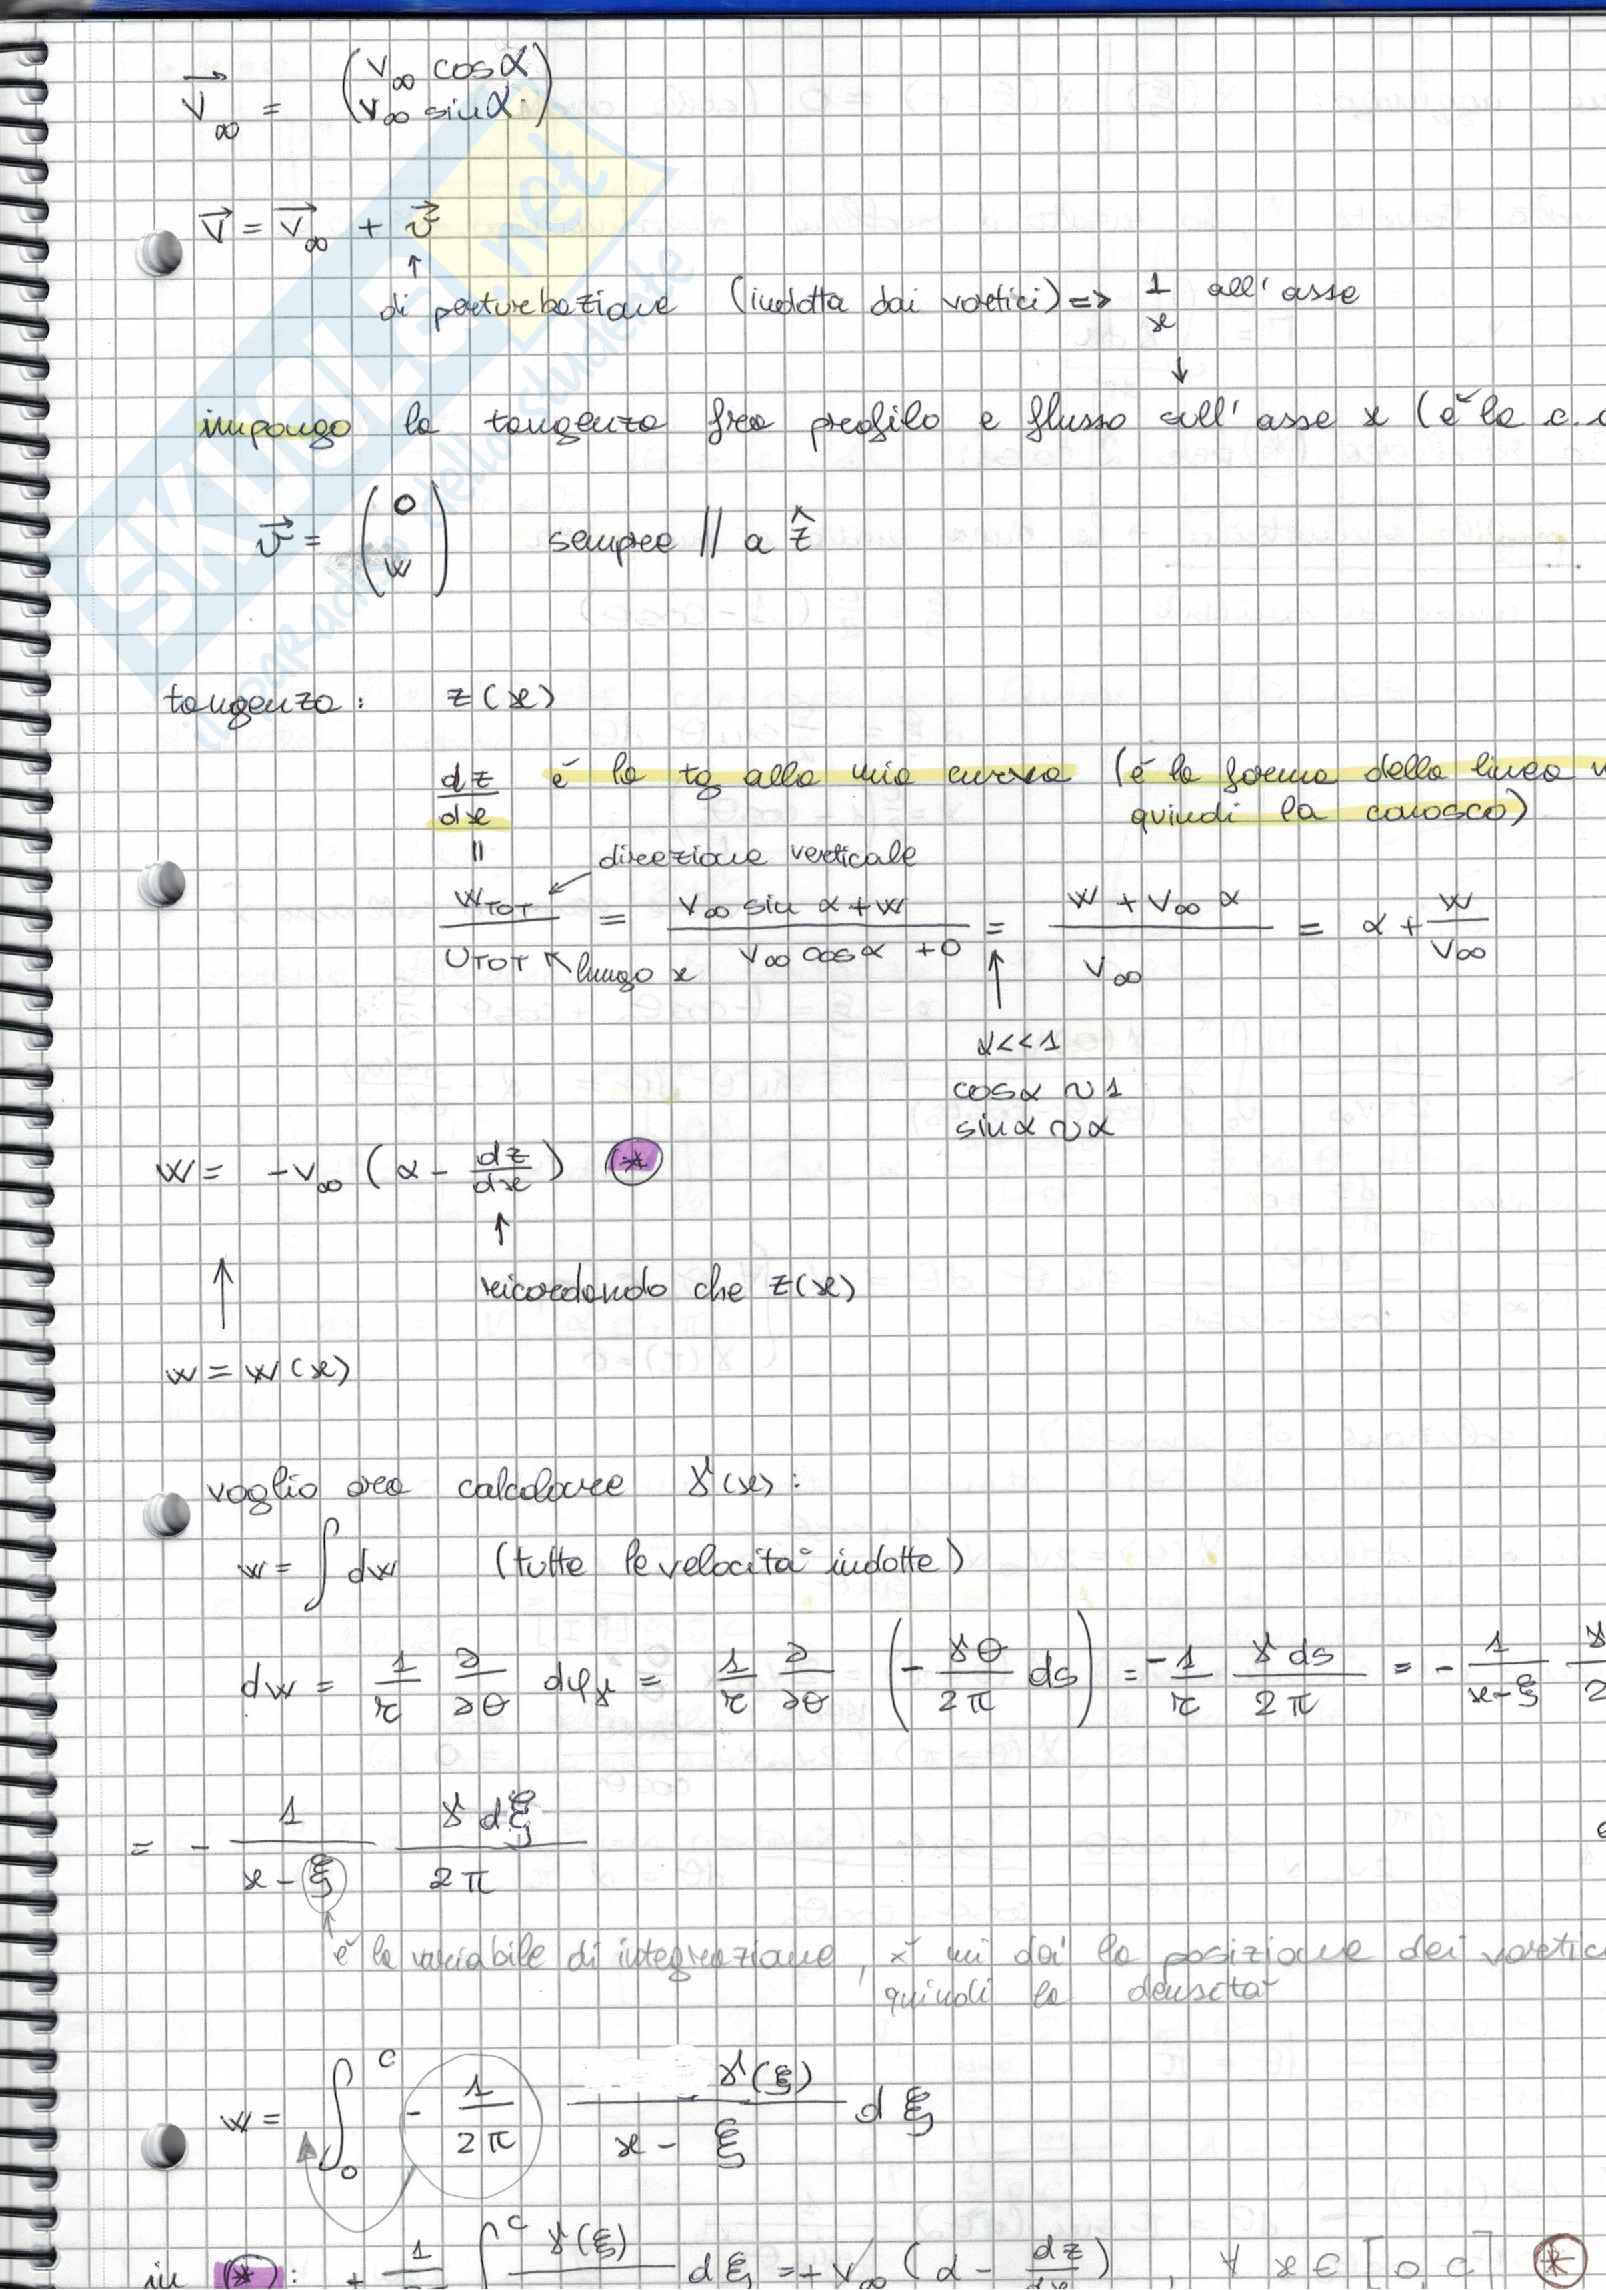 V⃗∞ = (V∞ cosα
V∞ sinα)
V⃗ = V⃗∞ + v⃗
↑
di perturbazione (indotta dai vortici) => 1/x all'asse
↓
impongo la tangenza fra profilo e flusso sull'asse x (è la c.c
v⃗ = (0
w) sempre // a ẑ
tangenza: z(x)
dz/dx è la tg alla mia curva (è la forma della linea
quindi la conosco)
direzione verticale
= W_TOT/U_TOT = (V∞ sin α + w)/(V∞ cosα + 0) = (w + V∞ α)/V∞ = α + w/V∞
lungo x
α<<1
cosα ~ 1
sinα ~ α
w = -V∞ (α - dz/dx) (*)
↑
ricordando che z(x)
↑
w = w(x)
voglio ora calcolare γ(x):
w = ∫ dw (tutte le velocità indotte)
dw = 1/r ∂/∂θ dφ_γ = 1/r ∂/∂θ (- γθ/2π ds) = -1/r γ ds/2π = - 1/(x-ξ) γ/2
= - 1/(x-ξ) γ dξ/2π
è la variabile di integrazione, x' mi dà la posizione dei vortic
quindi la densità
w = ∫₀ᶜ - 1/2π γ(ξ)/(x - ξ) dξ
in (*): + 1/ ∫ᶜ γ(ξ)/ dξ = + V∞ (α - dz/dx), ∀ x ∈ [0, c] (*)
SKUOLA.net
il paradiso dello studente